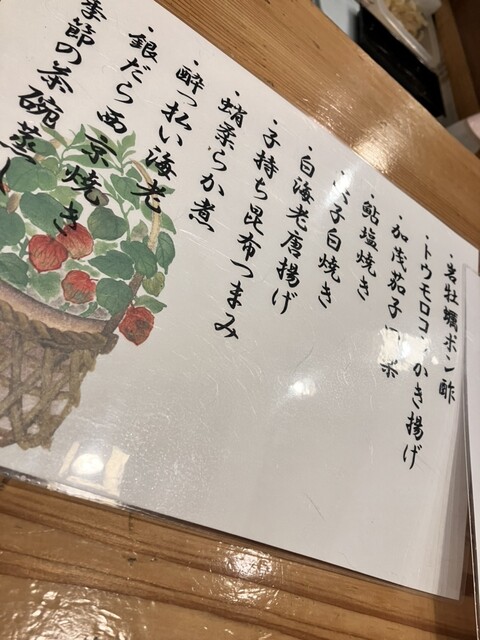 ・岩牡蠣ポン酢
・トウモロコシかき揚げ
・加茂茄子田楽
・鮎塩焼き
子白焼き
・白海老唐揚げ
・子持ち昆布つまみ
・蛸柔らか煮
・酔っ払い海老
・銀だら西京焼き
季節の茶碗蒸し